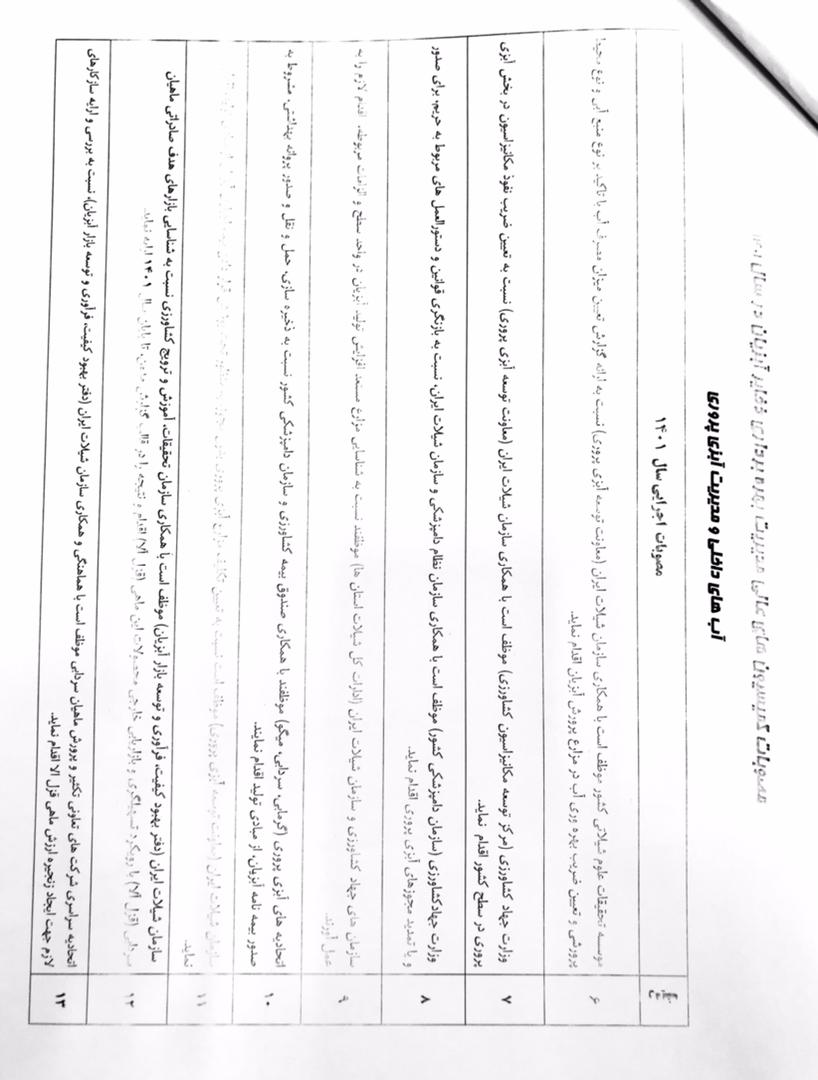 مصوبات کمیسیون های عالی مدیریت بهره برداری ذخایر آبزیان در سال ۱۴۰۱
آب های داخلی و مدیریت آبزی پروری
مصوبات اجرایی سال ۱۴۰۱
۶
موسسه تحقیقات علوم شیلاتی کشور موظف است با همکاری سازمان شیلات ایران (معاونت توسعه آبزی پروری) نسبت به ارائه گزارش تعیین میزان مصرف آب با تاکید بر نوع منبع آبی و نوع
پرورشی و تعیین ضریب بهره وری آب در مزارع پرورش آبزیان اقدام نماید.
۷
وزارت جهاد کشاورزی (مرکز توسعه مکانیزاسیون کشاورزی) موظف است با همکاری سازمان شیلات ایران (معاونت توسعه آبزی پروری) نسبت به تعیین ضریب نفوذ مکانیزاسیون در بخش آبزی
پروری در سطح کشور اقدام نماید.
۸
وزارت جهادکشاورزی (سازمان دامپزشکی کشور) موظف است با همکاری سازمان نظام دامپزشکی و سازمان شیلات ایران، نسبت به بازنگری قوانین و دستورالعمل های مربوط به حریم، برای صدور
و یا تمدید مجوزهای آبزی پروری اقدام نماید.
۹
سازمان های جهاد کشاورزی و سازمان شیلات ایران (ادارات کل شیلات استان ها) موظفند نسبت به شناسایی مزارع مستعد افزایش تولید آبزیان در واحد سطح و الزامات مربوطه، اقدام لازم را به
عمل آورند.
۱۰
اتحادیه های آبزی پروری (گرمابی، سردابی، میگو) موظفند با همکاری صندوق بیمه کشاورزی و سازمان دامپزشکی کشور نسبت به ذخیره سازی، حمل و نقل و صدور پروانه بهداشتی، مشروط به
صدور بیمه نامه آبزیان، از مبادی تولید اقدام نمایند.
۱۱
سازمان شیلات ایران (معاونت توسعه آبزی پروری) موظف است نسبت به تعیین تکلیف مزارع آبزی پروری
نماید.
۱۲
سازمان شیلات ایران (دفتر بهبود کیفیت، فرآوری و توسعه بازار آبزیان) موظف است با همکاری سازمان تحقیقات، آموزش و ترویج کشاورزی نسبت به شناسایی بازارهای هدف صادراتی ماهیان
سردابی (قزل آلا) با رویکرد تسهیلگری و بازاریابی خارجی محصولات این ماهی (قزل آلا) اقدام و نتیجه را در قالب گزارش مدون، تا پایان سال ۱۴۰۱ ارایه نماید.
۱۳
اتحادیه سراسری شرکت های تعاونی تکثیر و پرورش ماهیان سردابی موظف است با هماهنگی و همکاری سازمان شیلات ایران (دفتر بهبود کیفیت، فرآوری و توسعه بازار آبزیان)، نسبت به بررسی و ارایه سازکارهای
لازم جهت ایجاد زنجیره ارزش ماهی قزل آلا اقدام نماید.